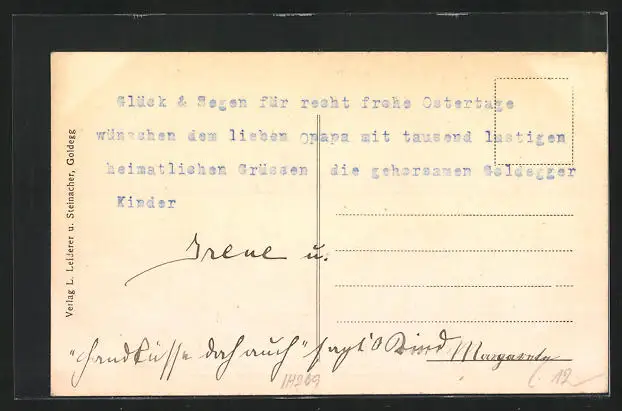 Glück & Segen für recht frohe Ostertage
wünschen dem lieben Opapa mit tausend lustigen
heimatlichen Grüssen die gehorsamen Goldegger
Kinder
Irene u.
"Handküsse doh auch" sagt's Kind Margarete
1H269
12
Verlag L. Lederer u. Steinacher, Goldegg